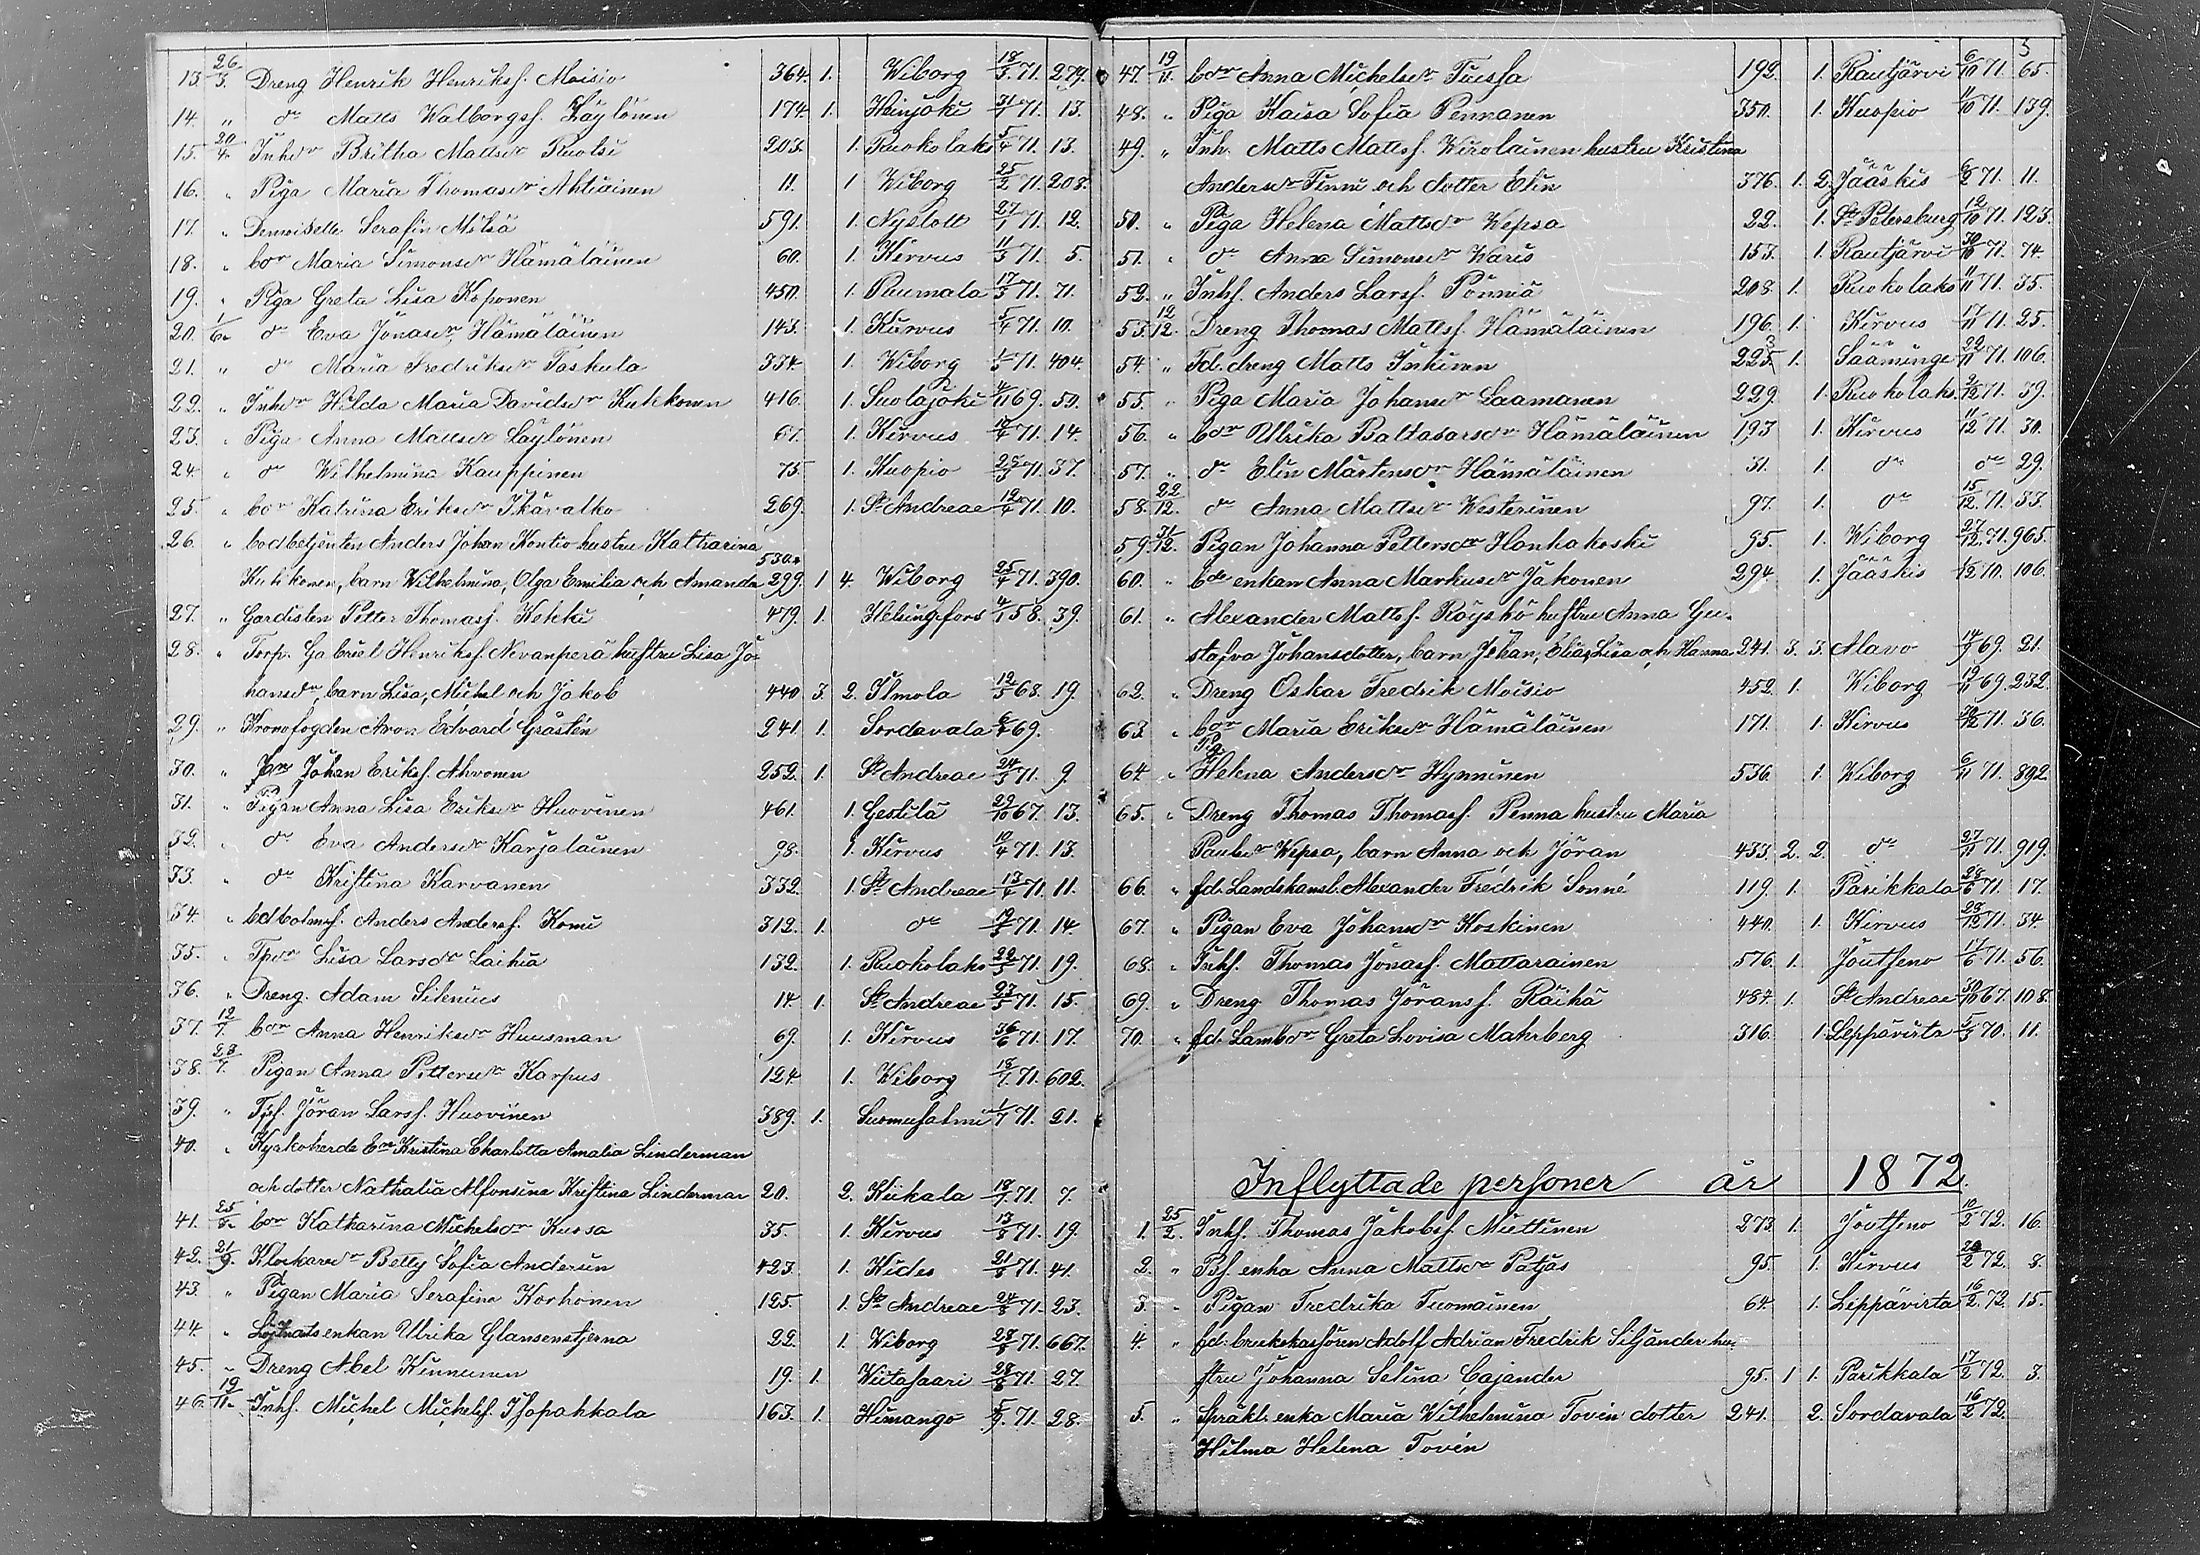 13. 26/3. Dreng Henrik Henrikss. Moisio 364. 1. Wiborg 18/3 71. 279.
14. „ dr Matts Walborgss. Läylönen 174. 1. Heinjoki 31/1 71. 13.
15. 20/4. Inhdr Britha Mattsdr Ruolsi 203. 1. Ruokolaks 5/4 71. 13.
16. „ Piga Maria Thomasdr Ahtiainen 11. 1 Wiborg 25/2 71. 208.
17. „ Demoiselle Serafin Mölsä 591. 1. Nyslott 27/1 71. 12.
18. „ bdr Maria Simonsdr Hämäläinen 60. 1. Kirvus 11/3 71. 5.
19. „ Piga Greta Lisa Koponen 450. 1. Puumala 17/3 71. 71.
20. 1/6. dr Eva Jönasdr Hämäläinen 143. 1. Kirvus 5/4 71. 10.
21. „ dr Maria Fredriksdr Taskula 334. 1. Wiborg 71. 404.
22. „ Inhdr Hilda Maria Davidsdr Kukkonen 416. 1. Suolajoki 69. 50.
23. „ Piga Anna Mattsdr Läylönen 67. 1. Kirvus 71. 14.
24. „ dr Wilhelmina Kauppinen 75 1. Kuopio 71. 37.
25. „ bdr Katrina Eriksdr Ikävalko 269. 1. St Andreae 71. 10.
26. „ bodbetjenten Anders Johan Kontio hustru Katharina 530.
Kukkonen, barn Wilhelmina, Olga Emilia och Amanda 299. 1 4. Wiborg 25/4 71. 390.
27. „ Gardisten Petter Thomass. Kekki 479. 1. Helsingfors 58. 39.
28. „ Torp. Gabriel Henrikss. Nevanperä hustru Lisa Jo-
hansdr, barn Lisa, Michel och Jakob 440 3. 2. Ilmola 12/5 68. 19.
29. „ Kronofogden Aron Edvard Gråstén 241. 1. Sordavala 69.
30. „ Johan Erikss. Ahvonen 252. 1. St Andreae 24/3 71. 9
31. „ Pigan Anna Lisa Eriksdr Huovinen 461. 1. Gestilä 29/10 67. 13.
32. „ dr Eva Andersdr Karjalainen 98. 1. Kirvus 10/4 71. 13.
33. „ dr Kristina Karvanen 332. 1. St Andreae 13/4 71. 11.
34. „ Anders Anderss. Komi 312. 1. dr 71. 14
35. „ Tpdr Lisa Larsdr Laihia 132. 1. Ruokolaks 22/5 71. 19.
36. „ Dreng. Adam Silenius 14. 1. St Andreae 23/5 71. 15.
37. 12/7. bdr Anna Henriksdr Huusman 69. 1. Kirvus 71. 17.
38. 23/7. Pigan Anna Pettersdr Karpus 124 1. Wiborg 18/7. 71. 602.
39. „ Tps. Jöran Larss. Huovinen 389. 1. Suomusalmi 1/7 71. 21.
40. „ Kyrkoherde Kristina Charlotta Amalia Linderman
och dotter Nathalia Alfonsina Kristina Linderman 20. 2. Kiikala 71. 7.
41. 25/8. bdr Katharina Michelsdr Kurssa 35. 1. Kirvus 13/8 71. 19.
42. 21/9. Klockaredr Betty Sofia Andersin 423. 1. Kides 21/8 71. 41.
43. „ Pigan Maria Serafina Korhonen 125. 1. St Andreae 24/8 71. 23.
44. „ Löjtnatsenkan Ulrika Glansenstjerna 22. 1. Wiborg 28/8 71. 667.
45. „ Dreng Abel Kinnunen 19. 1. Wiitasaari 71. 27.
46. 19/11. Inhs. Michel Michelss. Isopahkala 163. 1. Himango 5/9. 71. 28.
3
47. 19/11. bdr Anna Michelsdr Tiessa 192. 1. Rautjärvi 6/10 71. 65.
48. „ Piga Kaisa Sofia Pennanen 350. 1. Kuopio 11/10 71. 139.
49. „ Inh. Matts Mattss. Wirolainen hustru Kristina
Andersdr Tinni och dotter Elin 376. 1. 2. Jääskis 71. 11.
50. „ Piga Helena Mattsdr Wepsa 22. 1. St Petersburg 12/10 71. 123.
51. „ dr Anna Simonsdr Waris 153. 1. Rautjärvi 30/10 71. 74.
52. „ Inhs. Anders Larss. Pönniä 208. 1. Ruokolaks 71. 35.
53. 12/12. Dreng Thomas Mattss. Hämäläinen 196. 1. Kirvus 71. 25.
54. „ Fd. dreng Matts Inkinen 223. 1. Sääminge 22/11 71. 106.
55. „ Piga Maria Johansdr Laamanen 229. 1. Ruokolaks. 71. 39.
56. „ bdr Ulrika Baltasarsdr Hämäläinen 193 1. Kirvus 11/12 71. 30.
57. „ dr Elin Mårtensdr Hämäläinen 31. 1. dr dr 29.
58. 22/12. dr Anna Mattsdr Westerinen 97. 1. dr 15/12. 71. 33.
59. 31/12. Pigan Johanna Pettersdr Honkakoski 95. 1. Wiborg 27/12. 71. 965.
60. „ bde enkan Anna Markusdr Jäkonen 294. 1. Jääskis 70. 106.
61. „ Alexander Mattss. Röyskö hustru Anna Gu-
stafva Johansdotter, barn Johan, Elias, Lisa och Hanna 241. 3. 3. Alavo 14/9 69. 21.
62. „ Dreng Oskar Fredrik Moisio 452. 1. Wiborg 69. 232.
63. „ bdr Maria Eriksdr Hämäläinen 171. 1. Kirvus 71. 36.
64. „ Pig. Helena Andersdr Hynninen 536. 1. Wiborg 6/11 71. 892.
65. „ Dreng Thomas Thomass. Penna hustru Maria
Paulsdr Wepsa, barn Anna och Jöran 433. 2. 2. dr 27/11 71. 919.
66. „ fd. Landskansl. Alexander Fredrik Sonné 119. 1. Parikkala 28/6 71. 17.
67. „ Pigan Eva Johansdr Koskinen 440. 1. Kirvus 28/12 71. 34.
68. „ Inhs. Thomas Jönass. Mattarainen 576. 1. Joutseno 17/6 71. 56.
69. „ Dreng Thomas Jöranss. Räihä 484. 1. St Andreae 30/10 67. 108.
70. „ fd. Lambdr Greta Lovisa Mahrberg 316. 1. Leppävirta 70. 11.
Inflyttade personer år 1872.
1. 25/2. Inhs. Thomas Jakobss. Miettinen 273 1. Joutseno 10/2 72. 16.
2. „ Bs. enka Anna Mattsdr Patjas 95. 1. Kirvus 72. 8.
3. „ Pigan Fredrika Tuomainen 64. 1. Leppävirta 16/2. 72. 15.
4. „ fd. brukskassören Adolf Adrian Fredrik Siljander hu-
stru Johanna Selina Cajander 95. 1 1. Parikkala 17/2 72. 3.
5. „ Språkl. enka Maria Wilhelmina Tovin dotter 241. 2. Sordavala 16/2 72.
Hilma Helena Tovén